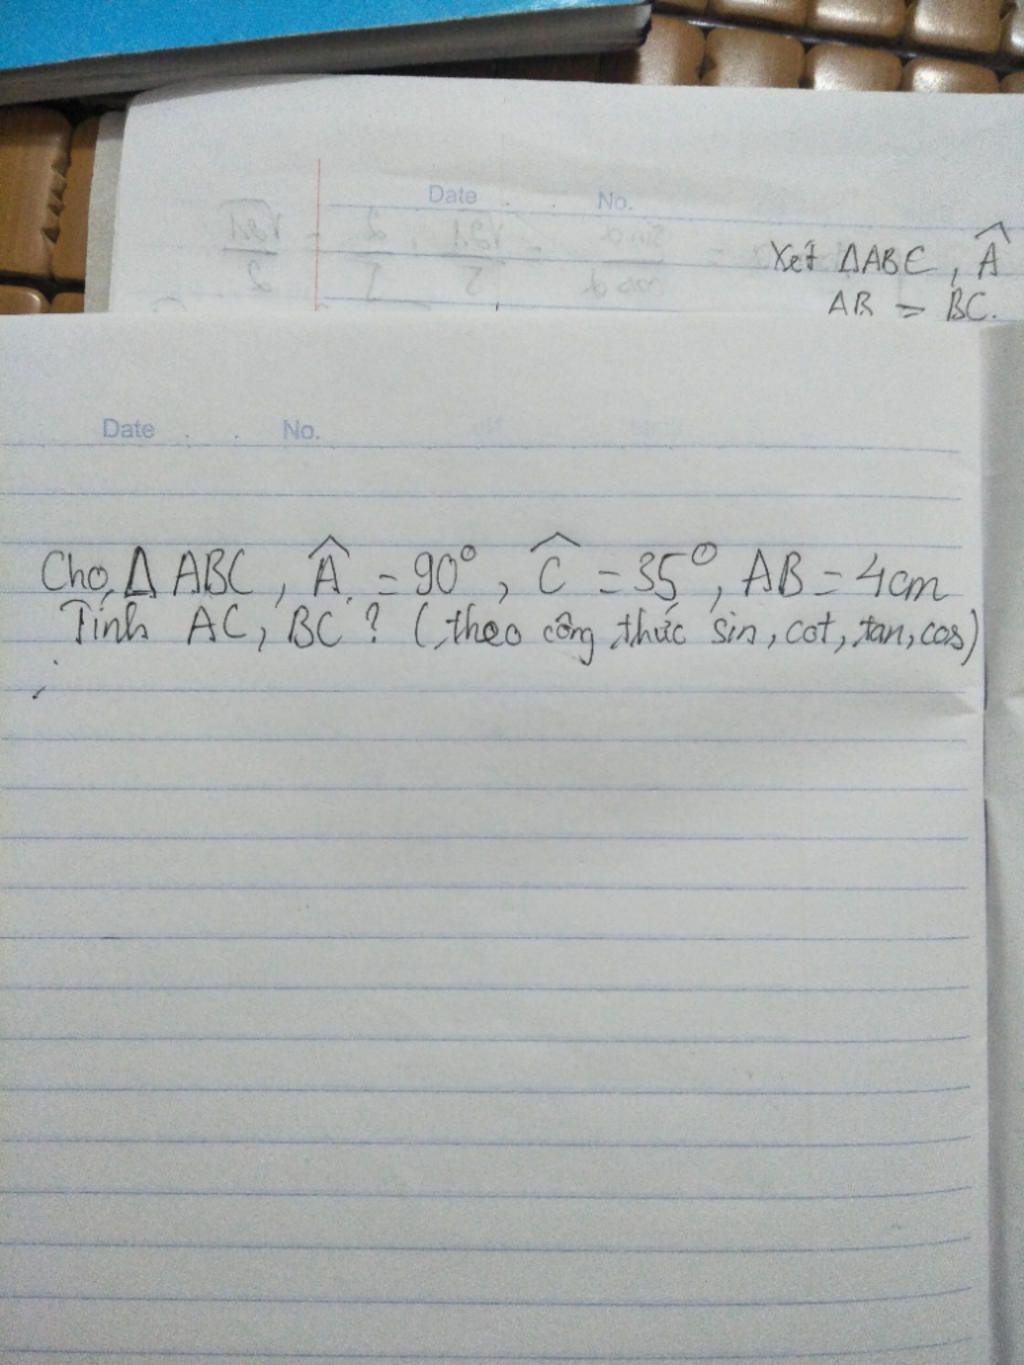 Date No.
Xét ΔABC, Â
AB = BC.
Date No.
Cho Δ ABC, Â = 90°, Ĉ = 35°, AB = 4cm
Tính AC, BC ? (theo công thức sin, cot, tan, cos)